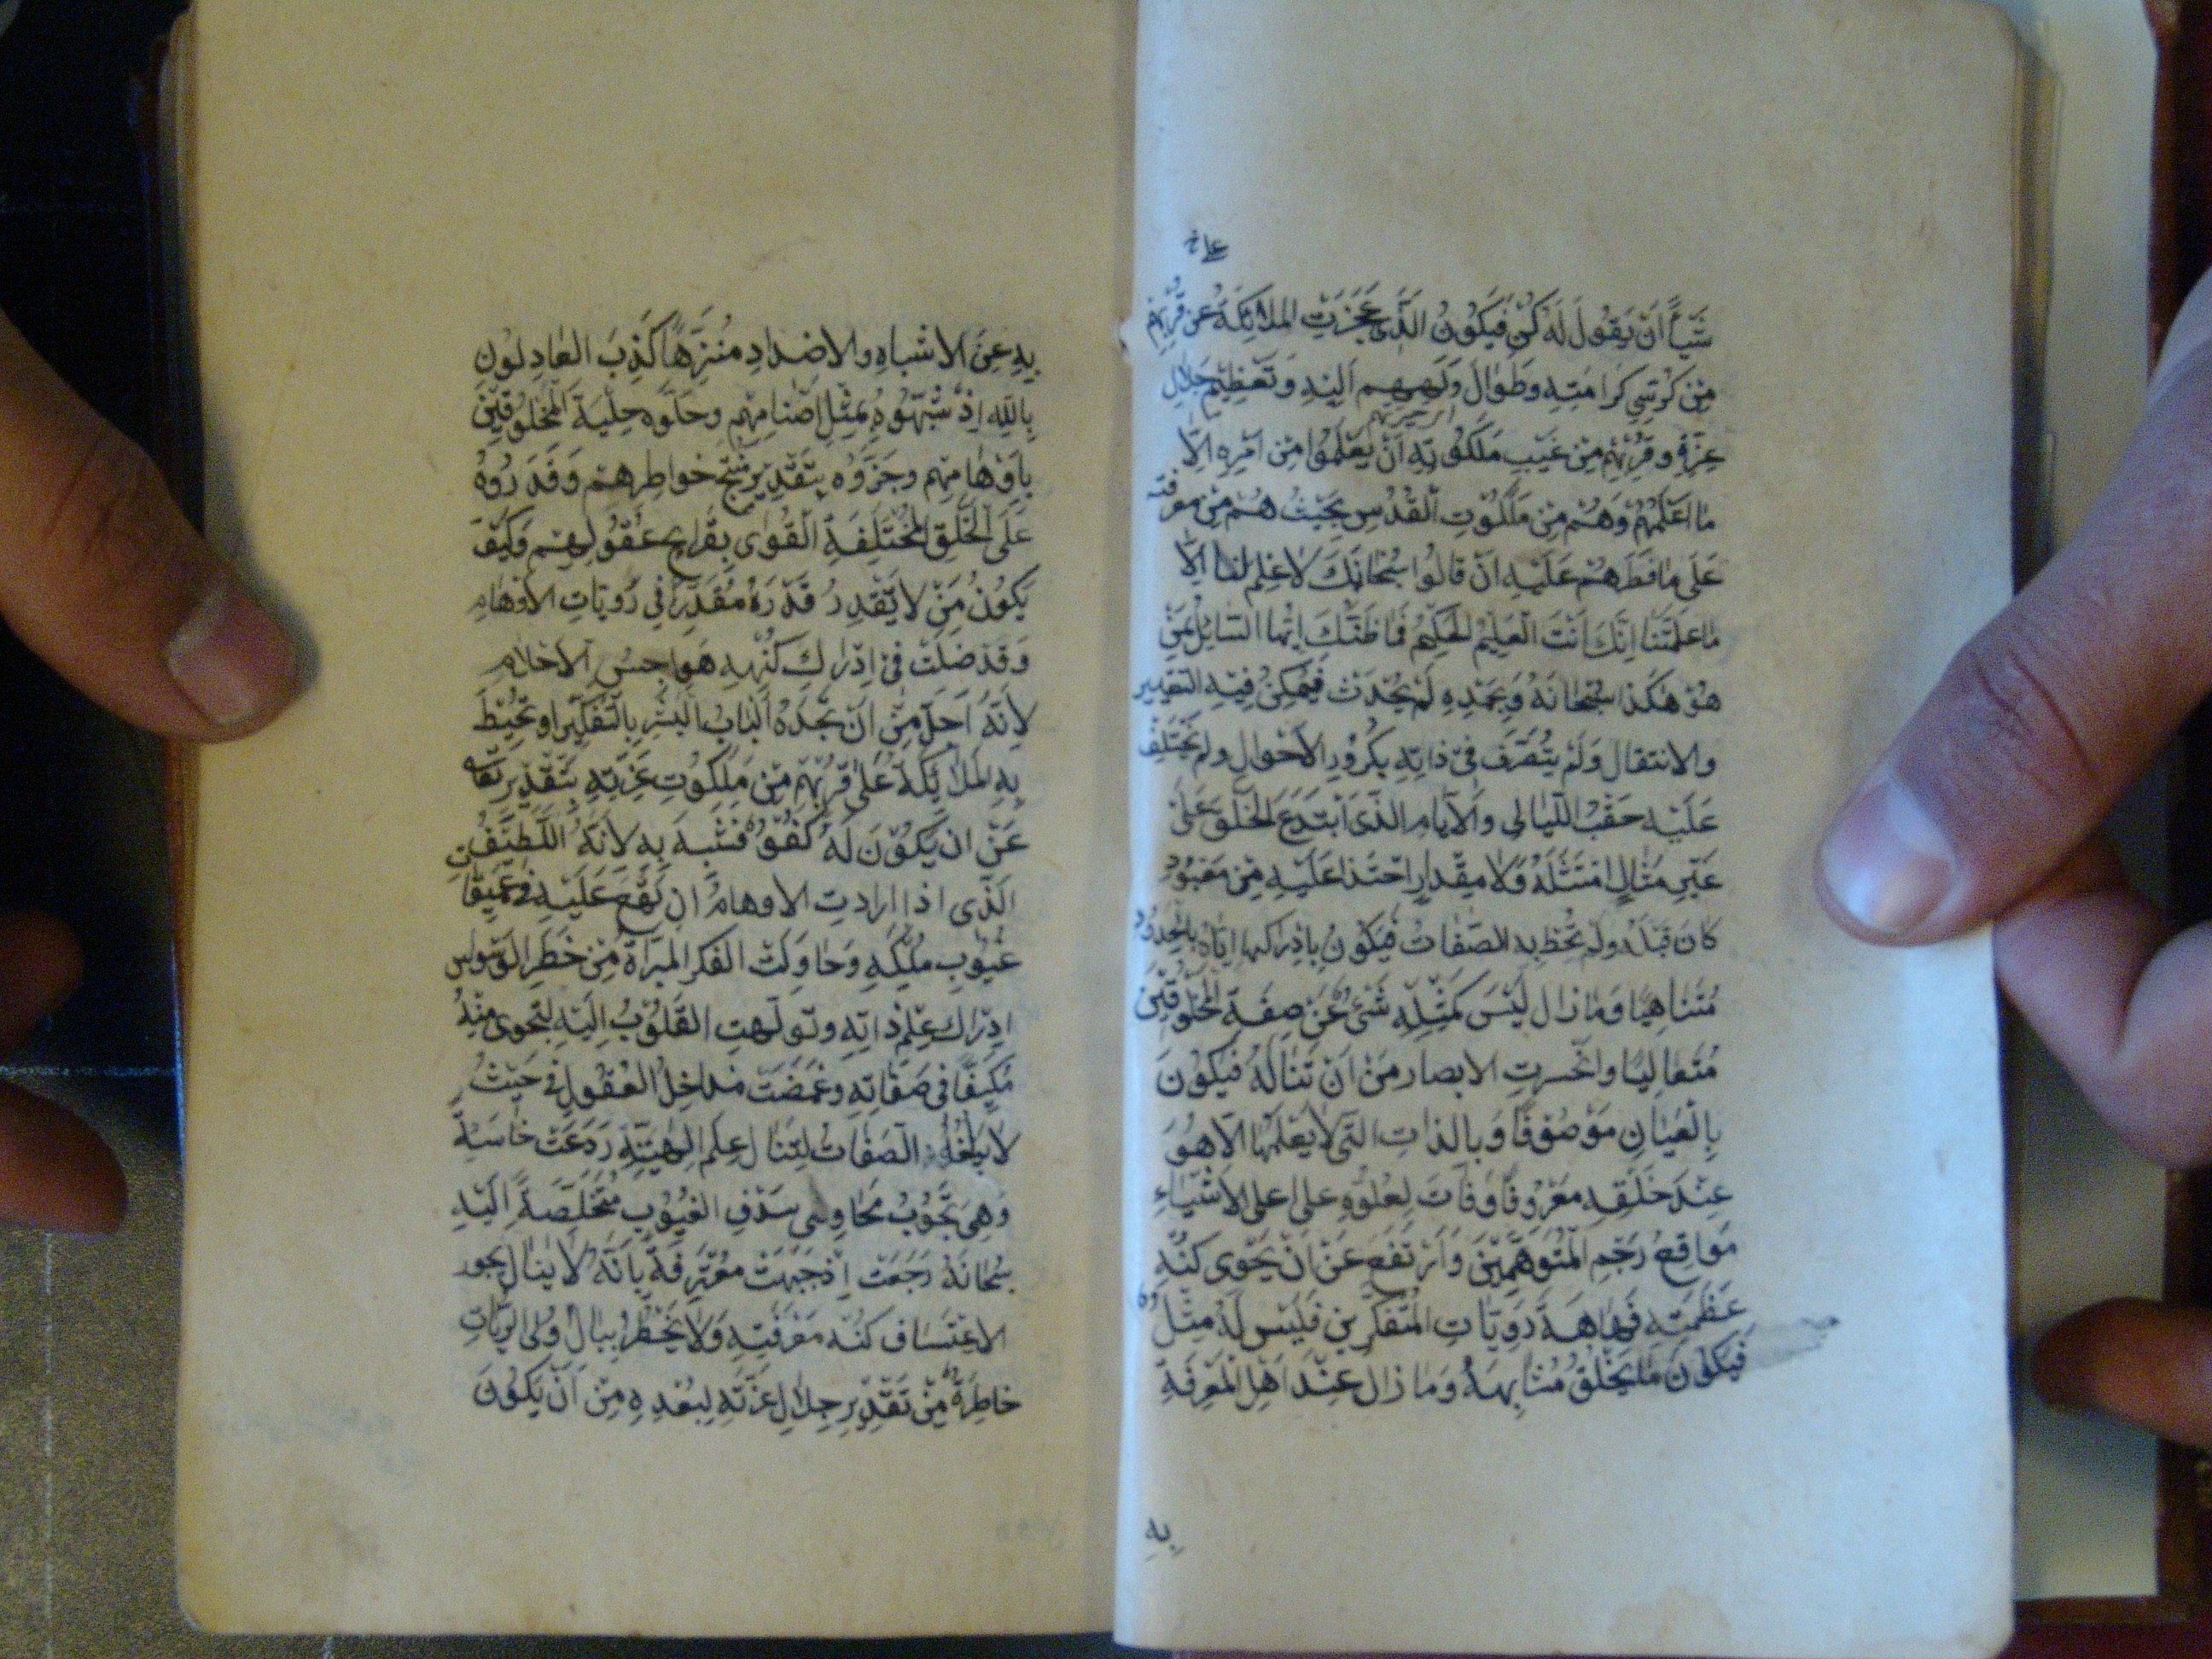 على خ
شيأً ان يقول له كن فيكون الذي عجزت الملائكة عن قربهم
من كرسي كرامته وطوال ولههم اليه وتعظيم جلال
عزه وقربهم من غيب ملكوته ان يعلموا من امره الا
ما اعلمهم وهم من ملكوت القدس بحيث هم من معرفته
على ما فطرهم عليه ان قالوا سبحانك لا علم لنا الا
ما علمتنا انك انت العليم الحكيم فما ظنك ايها السايل بمن
هو هكذا سبحانه وبحمده لم يحدث فيمكن فيه التغيير
والانتقال ولم يتصرف في ذاته بكرور الاحوال ولم يختلف
عليه حقب الليالي والايام الذي ابتدع الخلق على
غير مثال امتثله ولا مقدار احتذا عليه من معبود
كان قبله ولم تحط به الصفات فيكون بادراكها اياه بالحدود
متناهيا وما زال ليس كمثله شئ عن صفة المخلوقين
متعاليا وانحسرت الابصار من ان تناله فيكون
بالعيان موصوفا وبالذات التي لا يعلمها الا هو
عند خلقه معروفا وفات لعلوه على اعلى الاشياء
مواقع رجم المتوهمين وارتفع عن ان يحوي كنه
عظمته فهاهة رويات المتفكرين فليس له مثل
فيكون ما يخلق مشابهه وما زال عند اهل المعرفة
به
به عن الاشباه والاضداد منزها كذب العادلون
بالله اذ شبهوه بمثل اصنامهم وحلوه حلية المخلوقين
باوهامهم وجزوه بتقدير منتج خواطرهم وقدروه
على الخلق المختلفة القوى بقرايح عقولهم وكيف
يكون من لا يقدر قدره مقدرا في رويات الاوهام
وقد ضلت في ادراك كنهه هواجس الاحلام
لانه اجل من ان تحده الباب البشر بالتفكير او تحيط
به الملائكة على قربهم من ملكوت عزته بتقدير تعالى
عن ان يكون له كفو فيشبه به لانه اللطيف
الذي اذا ارادت الاوهام ان تقع عليه في عميقات
غيوب ملكه وحاولت الفكر المبرأة من خطر الوسواس
ادراك علم ذاته وتولهت القلوب اليه لتحوى منه
مكيفا في صفاته وغمضت مداخل العقول في حيث
لا تبلغه الصفات لتنال علم الهيته ردعت خاسئة
وهي تجوب مهاوي سدف الغيوب متخلصة اليه
سبحانه رجعت اذ جبهت معترفة بانه لا ينال بجور
الاعتساف كنه معرفته ولا يخطر ببال اولى الرويات
خاطرة من تقدير جلال عزته لبعده من ان يكون